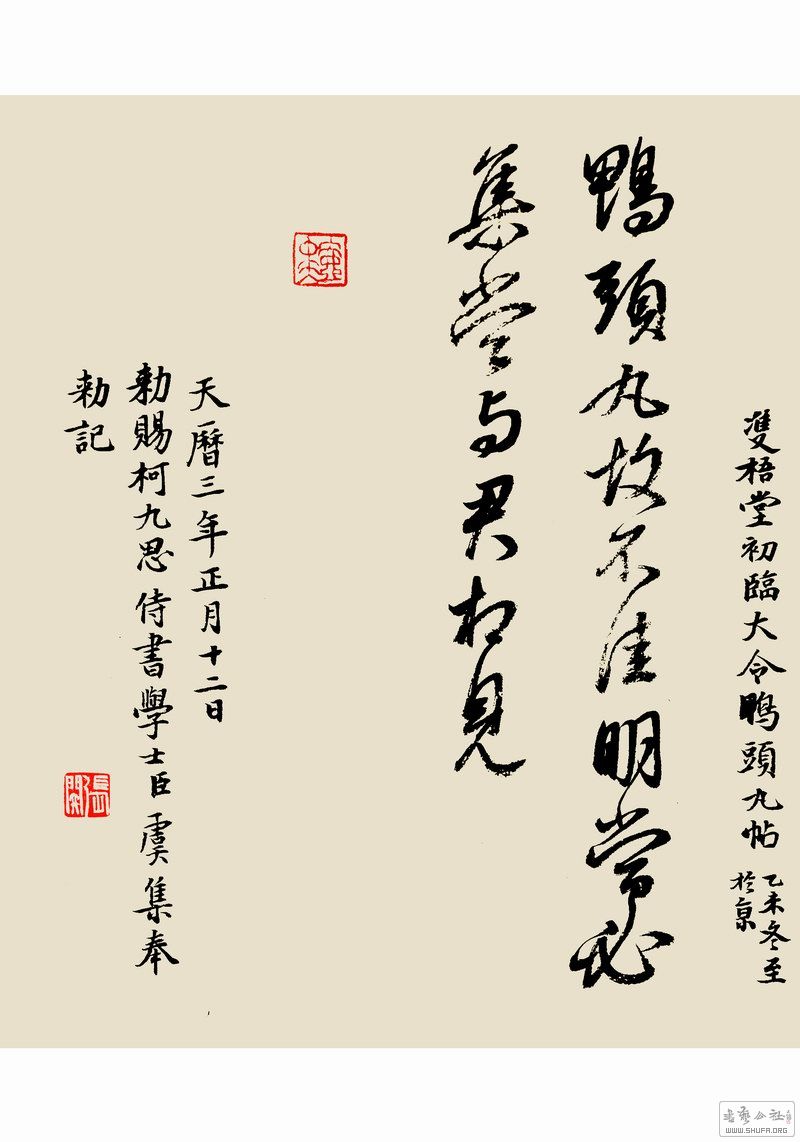 雙梧堂初臨大令鴨頭丸帖
乙未冬至
於京
鴨頭丸故不佳明當必
集當与君相見
天曆三年正月十二日
勅賜柯九思侍書學士臣虞集奉
勅記
張闕
書藝公社
WWW.SHUFA.ORG